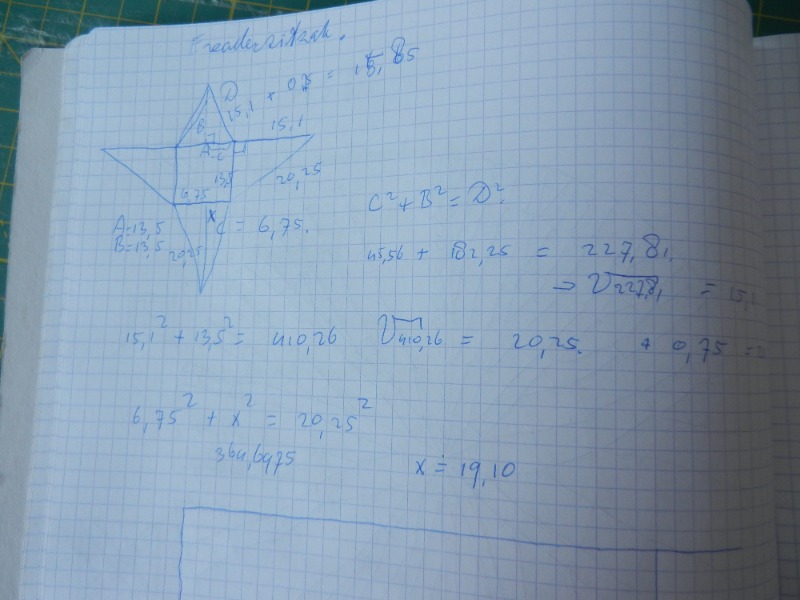 D
15,1 × 0,75 = 15,85
B
15,1
A
C
13,5
6,75
20,25
x
A=13,5
B=13,5
C = 6,75.
20,25
C² + B² = D²
45,56 + 182,25 = 227,81
→ √227,81 = 15,1
15,1² + 13,5² = 410,26 √410,26 = 20,25. + 0,75 =
6,75² + x² = 20,25²
364,6975
x = 19,10